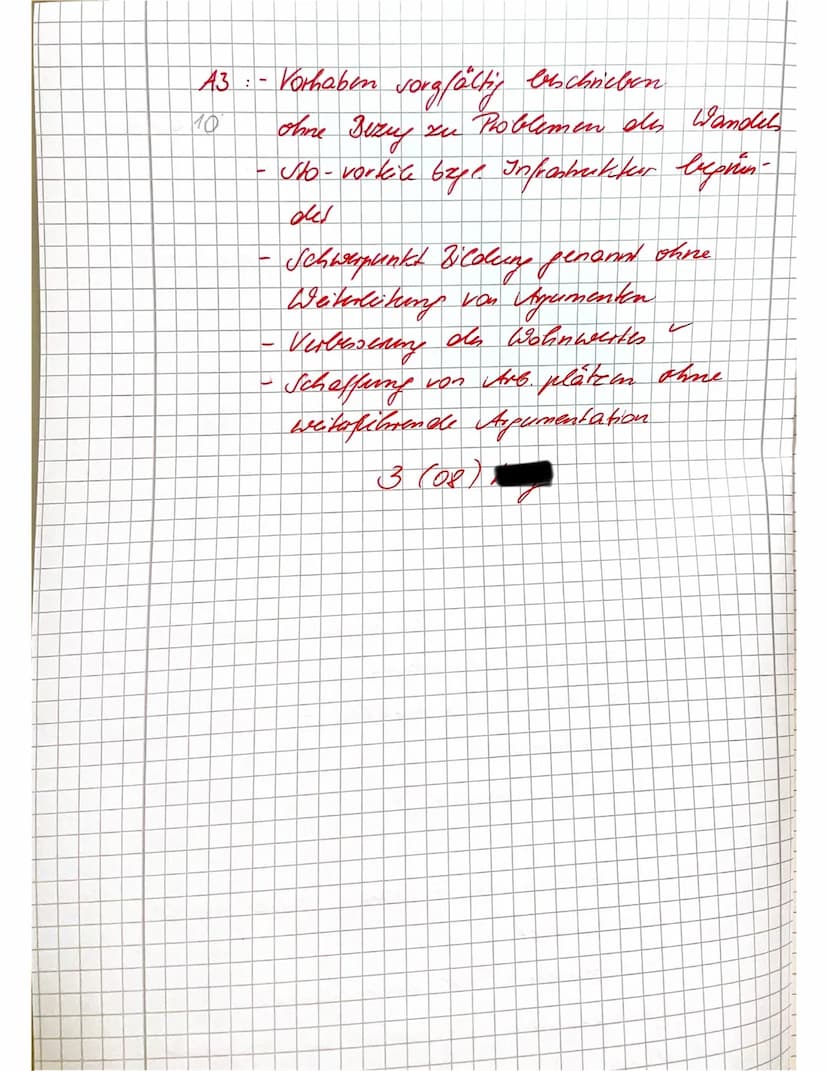 A3 : - Vorhaben sorgfältig beschrieben
10 ohne Bezug zu Problemen des Wandels
- Sto-vorteile bzgl. Infrastruktur begrün-
det
- Schwerpunkt Bildung genannt ohne
Weiterleitung von Argumenten
- Verbesserung des Wohnwertes ✓
- Schaffung von Arb.plätzen ohne
weiterführende Argumentation
3 (08)